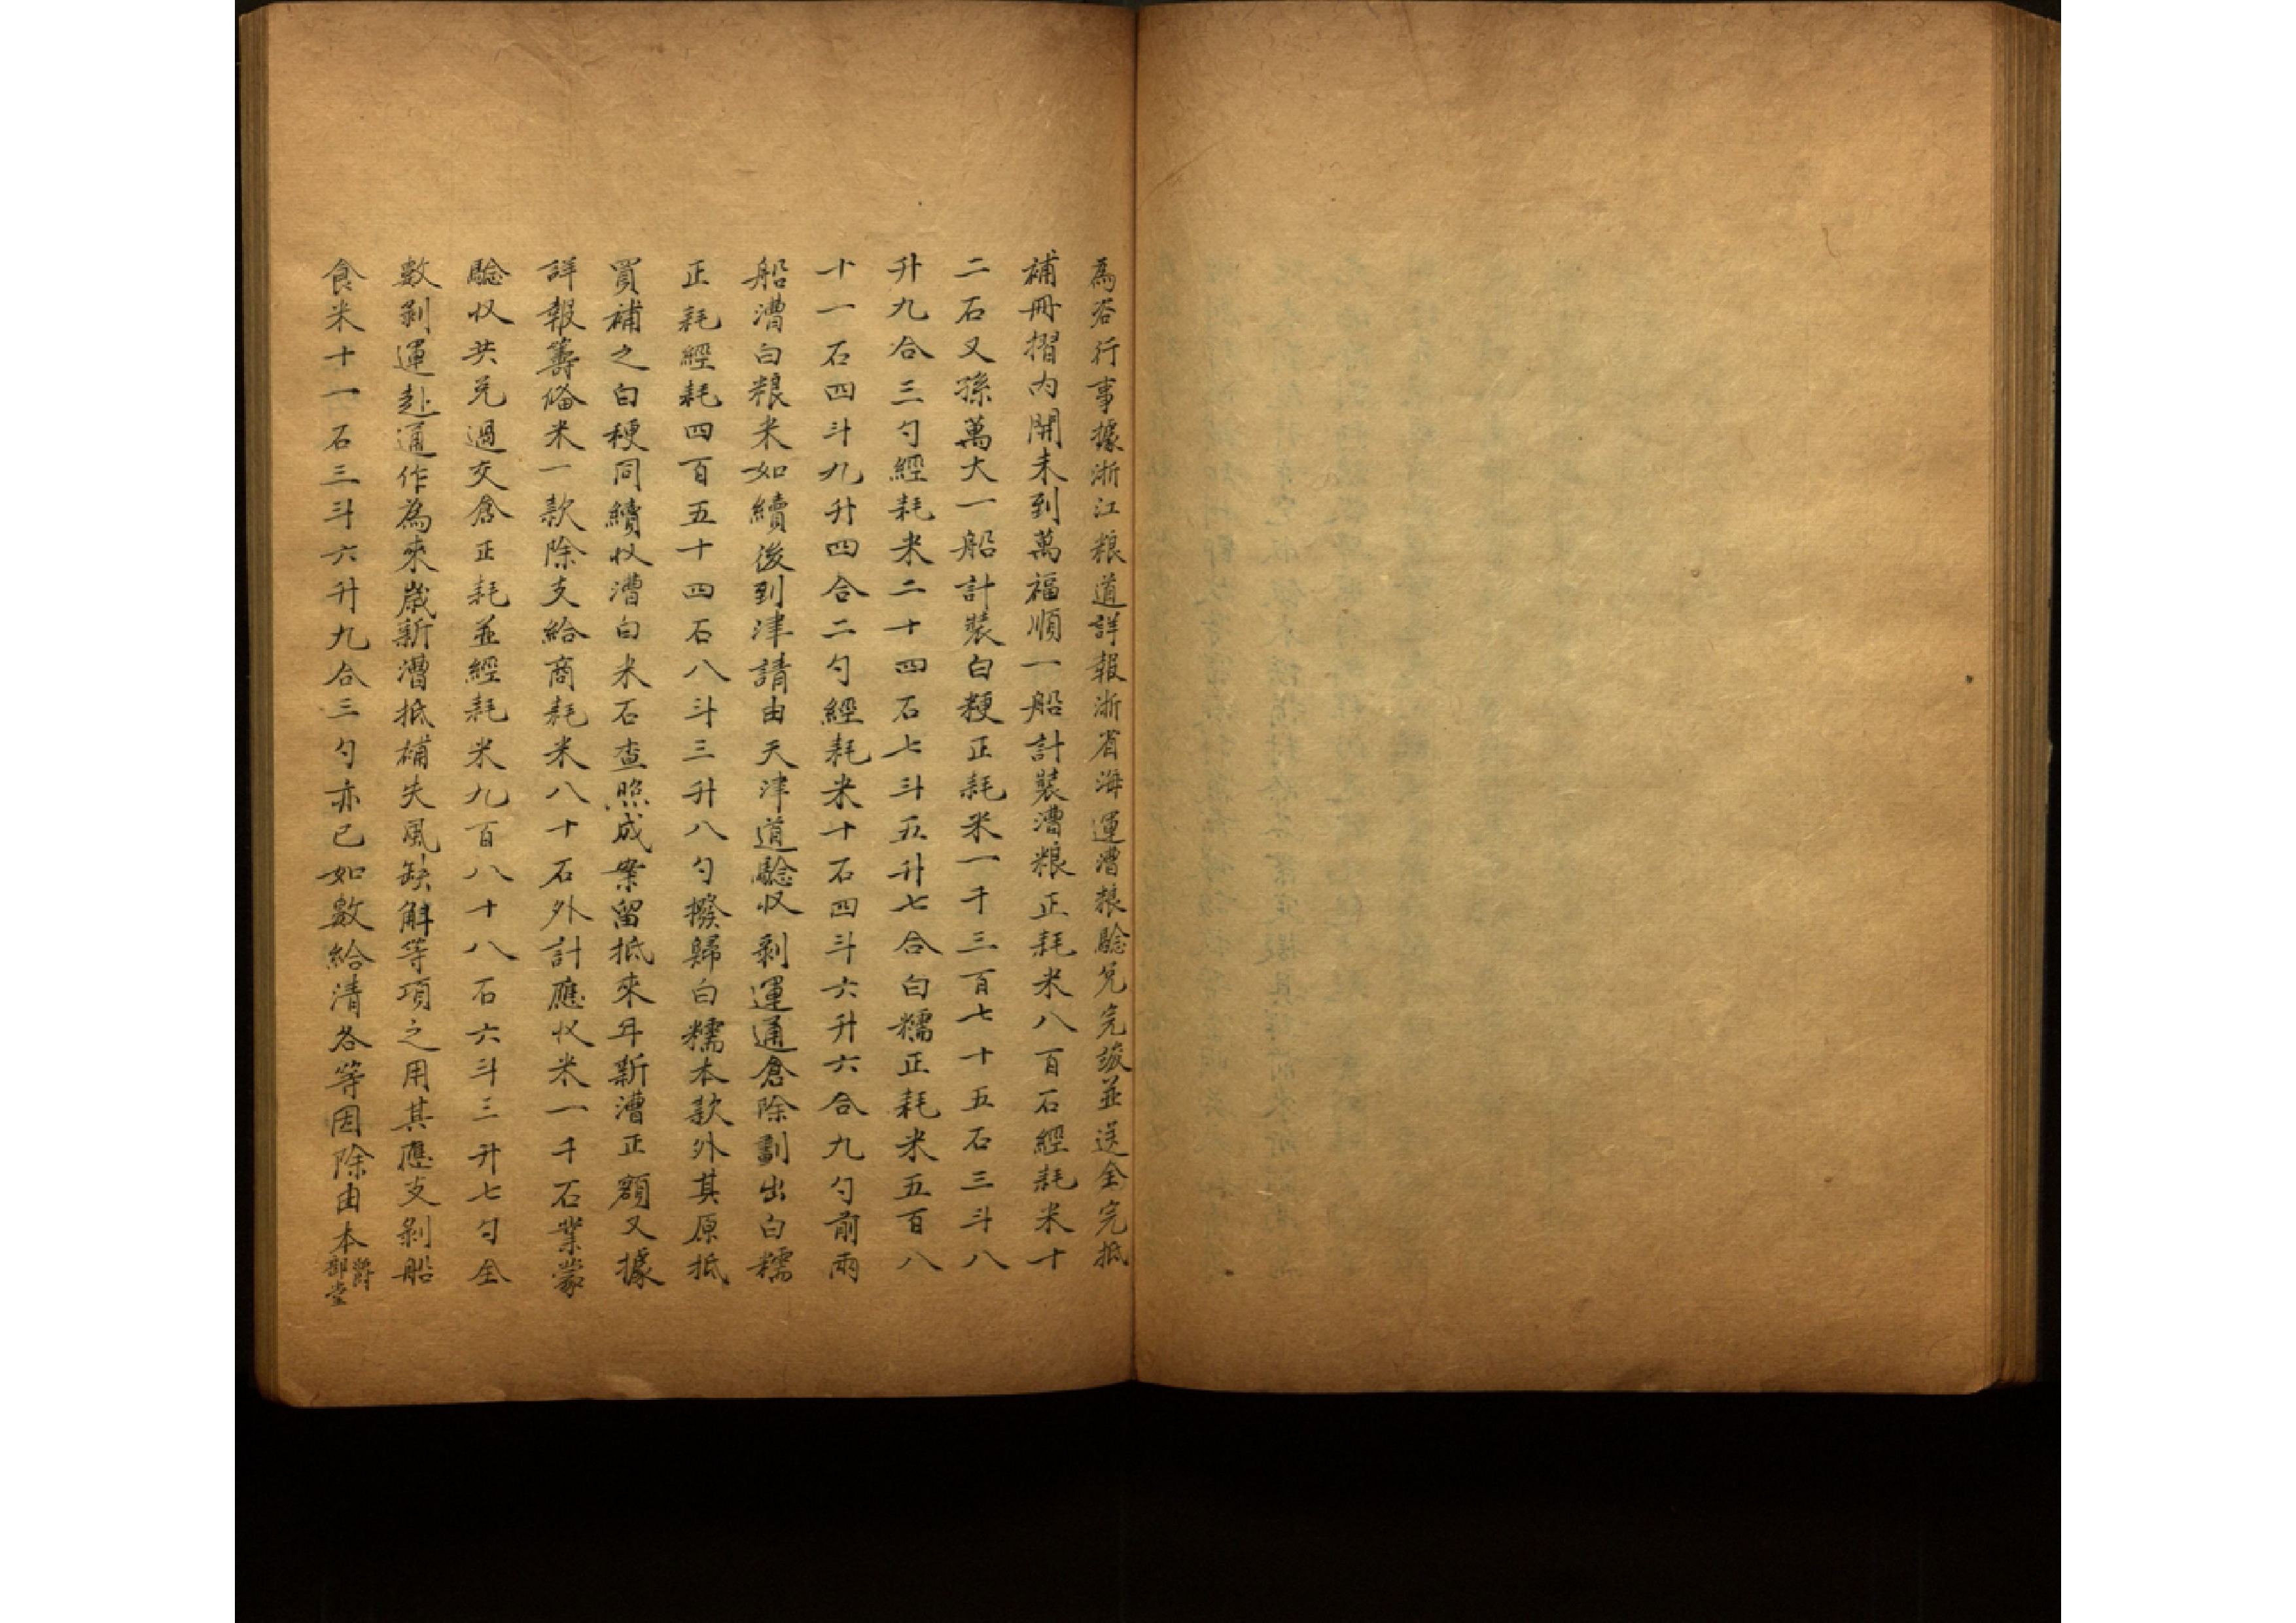 為咨行事據浙江粮道詳報浙省海運漕粮驗兌完竣並送全完抵
補冊摺內開未到萬福順一船計裝漕粮正耗米八百石經耗米十
二石又孫萬大一船計裝白粳正耗米一千三百七十五石三斗八
升九合三勺經耗米二十四石七斗五升七合白糯正耗米五百八
十一石四斗九升四合二勺經耗米十石四斗六升六合九勺前兩
船漕白粮米如續後到津請由天津道驗收剝運通倉除劃出白糯
正耗經耗四百五十四石八斗三升八勺撥歸白糯本款外其原抵
買補之白粳同續收漕白米石查照成案留抵來年新漕正額又據
詳報籌俻米一款除支給商耗米八十石外計應收米一千石業蒙
驗收共兌過交倉正耗並經耗米九百八十八石六斗三升七勺全
數剝運赴通作為來歲新漕抵補失風缺斛等項之用其應支剝船
食米十一石三斗六升九合三勺亦已如數給清各等因除由本爵部堂